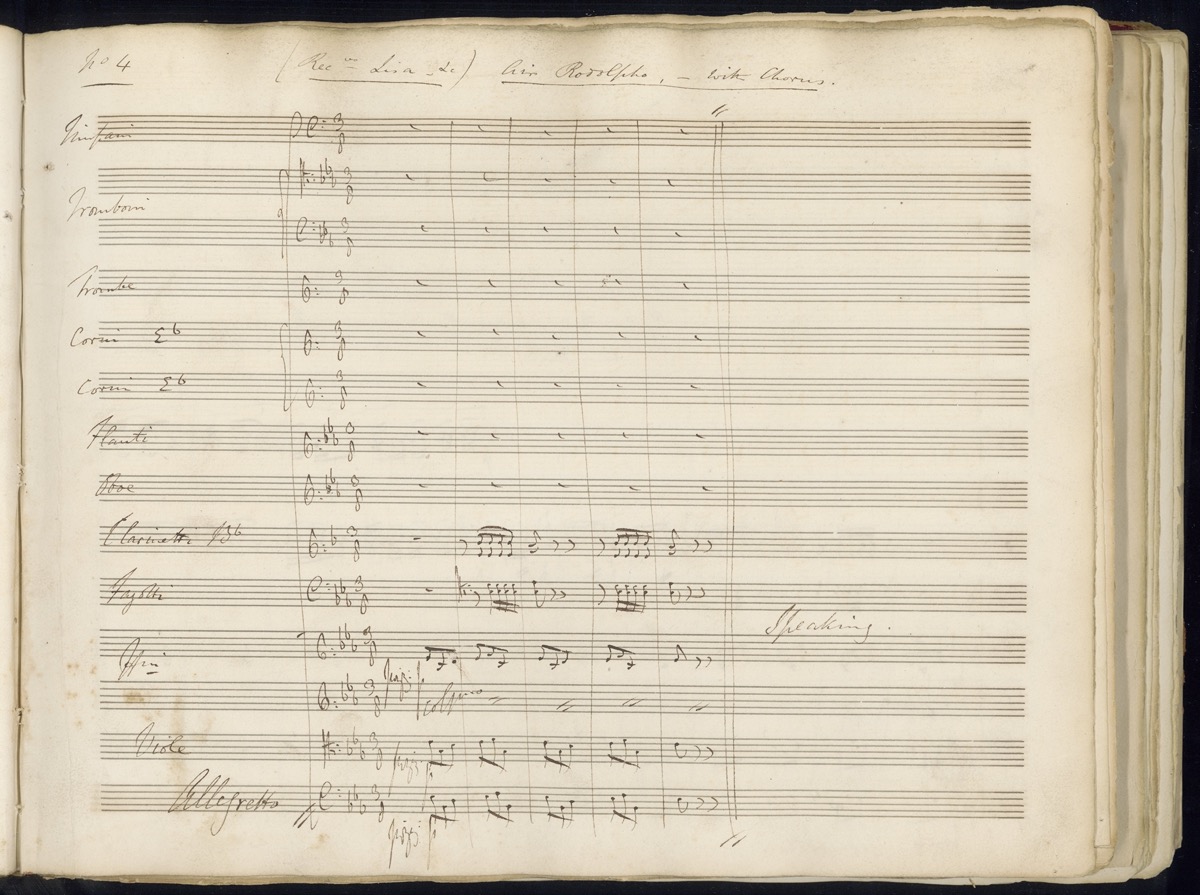 No 4 (Rec ve Lisa &c) Air Rodolpho, – with Chorus.
Timpani
Tromboni
Trombe
Corni Eb
Corni Eb
Flauti
Oboe
Clarinetti Bb
Fagotti
Speaking.
Vni
pizz:
col pmo
Viole
pizz: p
Allegretto
pizz: p